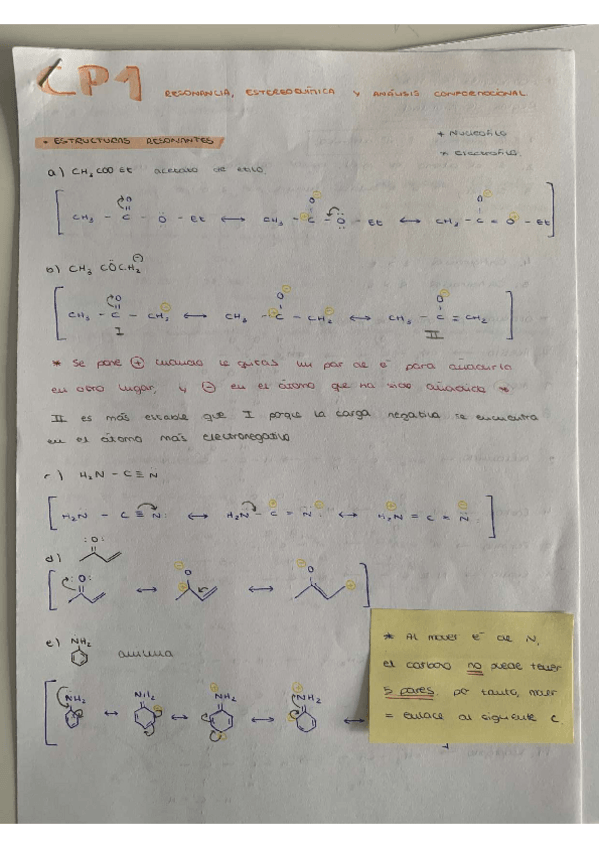 CP1 RESONANCIA, ESTEREOQUÍMICA Y ANÁLISIS CONFORMACIONAL
• ESTRUCTURAS RESONANTES
+ Nucleófilo
Electrófilo
a) CH3 COO Et acetato de etilo.
CH3 - C - Ö - Et ↔ CH3 - C - Ö - Et ↔ CH3 - C = O - Et
b) CH3 CÖCH2
CH3 - C - CH2 ↔ CH3 - C - CH2 ↔ CH3 - C = CH2
I
II
* Se pone + cuando le quitas un par de e⁻ para añadirlo
en otro lugar, y - en el átomo que ha sido añadido
II es más estable que I porque la carga negativa se encuentra
en el átomo más electronegativo
c) H2N - C ≡ N
H2N - C ≡ N: ↔ H2N - C = N: ↔ H2N = C = N:
d)
e) NH2
anilina
NH2 ↔ NH2 ↔ NH2 ↔ NH2 ↔
* Al mover e⁻ de N,
el carbono no puede tener
5 pares, por tanto, mover
= enlace al siguiente C.